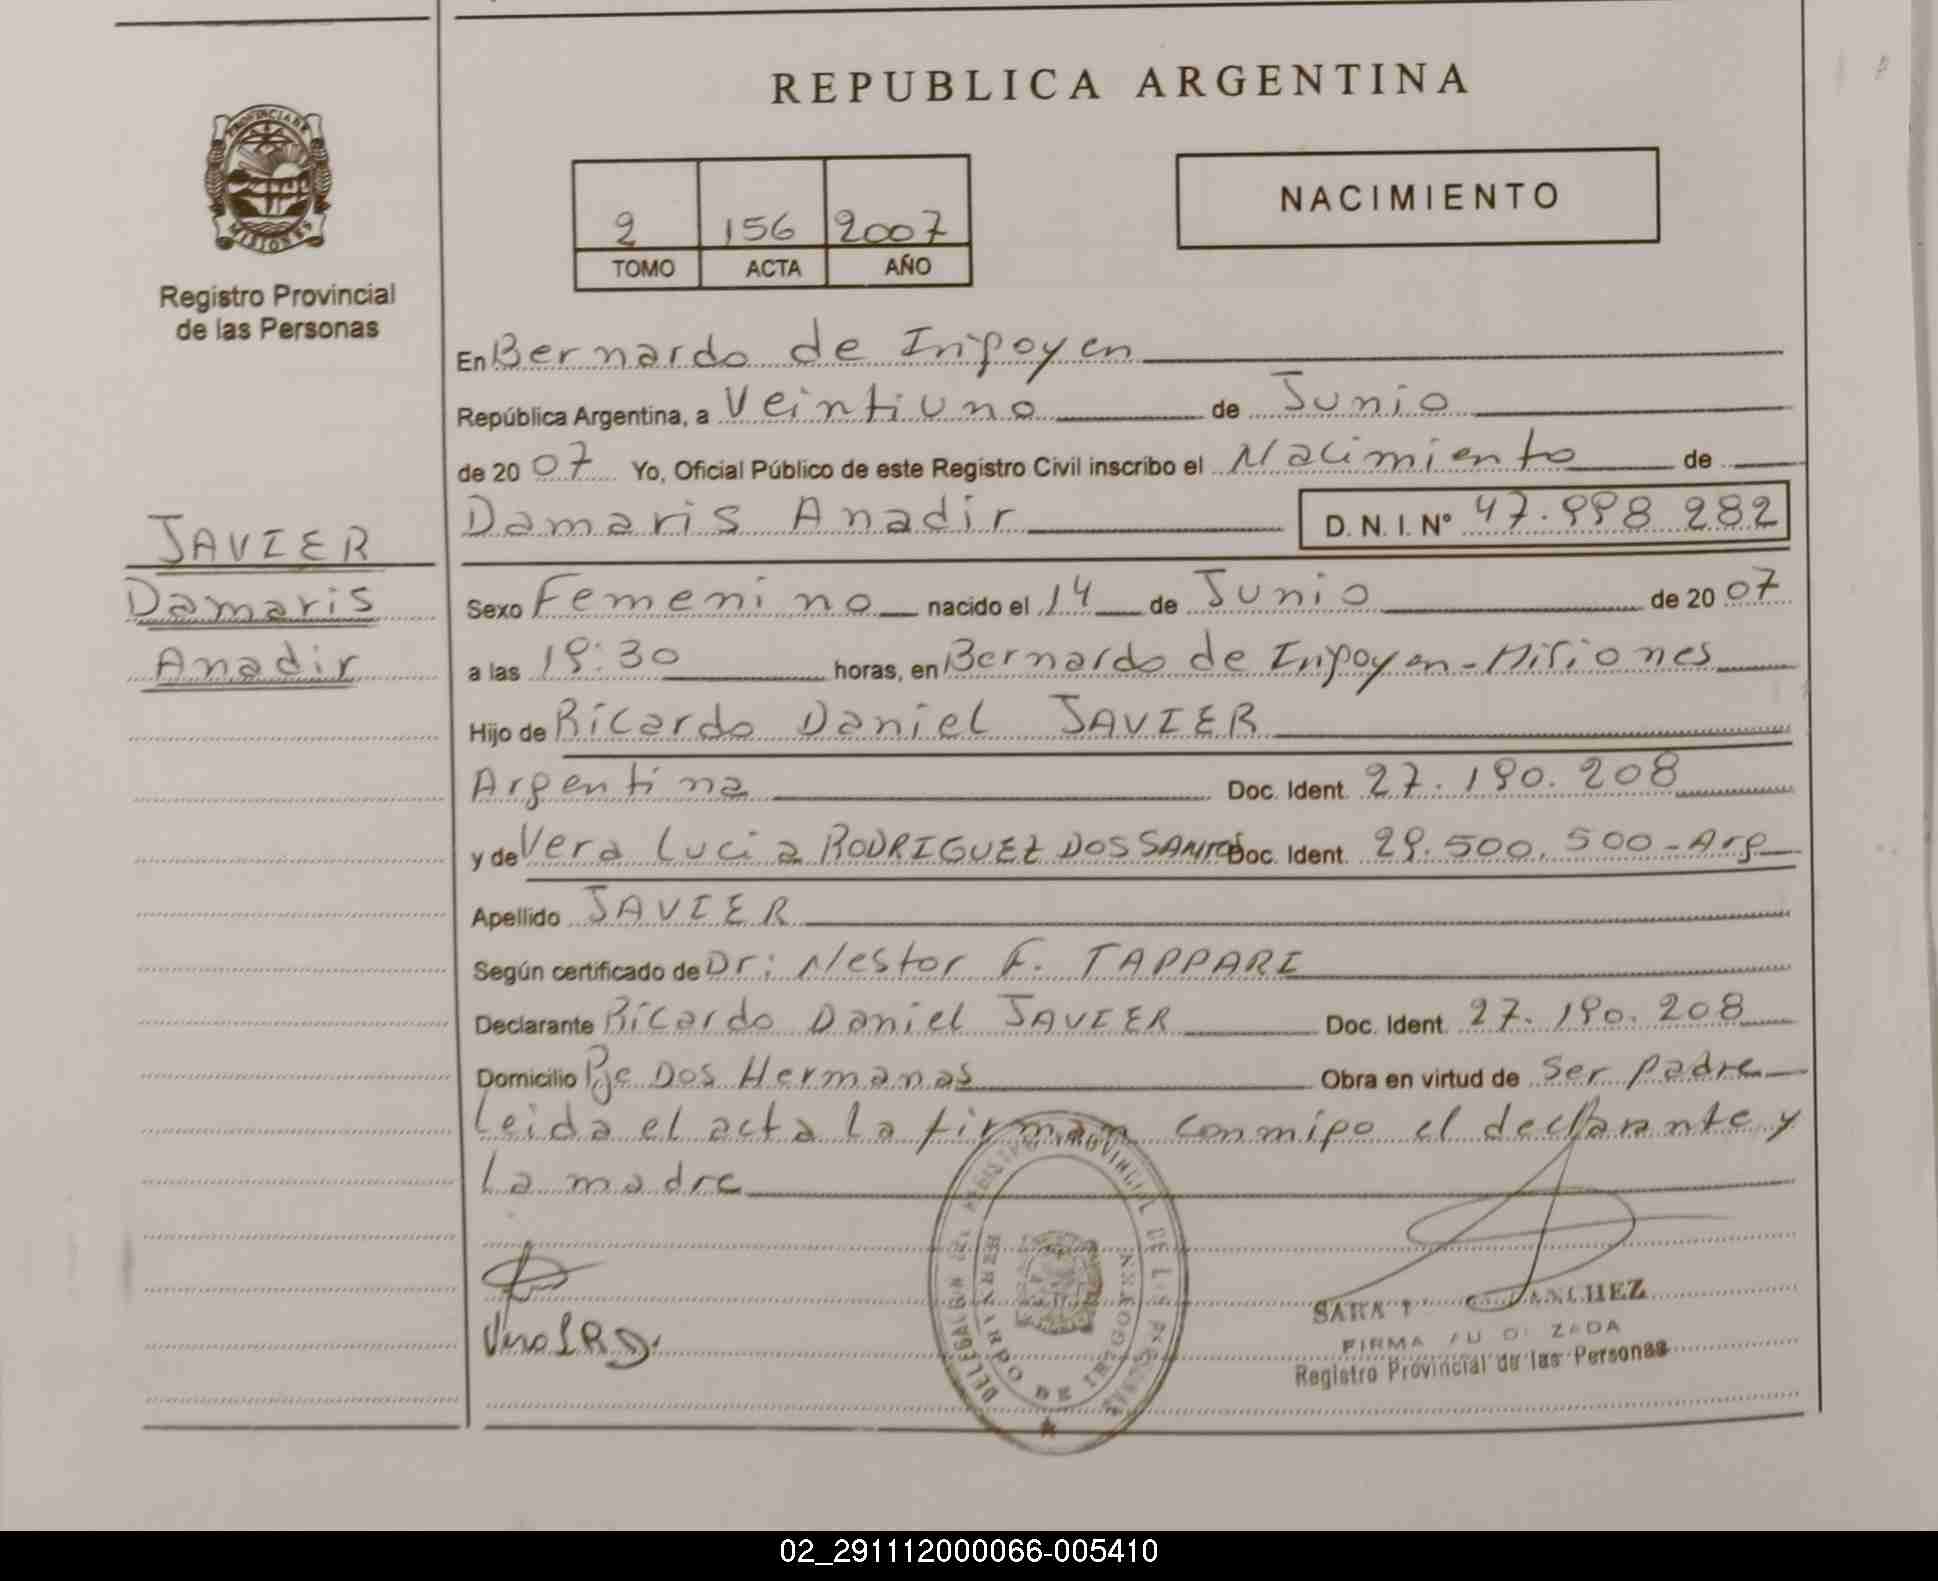 REPUBLICA ARGENTINA
PROVINCIA DE
MISIONES
Registro Provincial
de las Personas
NACIMIENTO
2 156 2007
TOMO ACTA AÑO
En Bernardo de Irigoyen
República Argentina, a Veintiuno de Junio
de 20 07 Yo, Oficial Público de este Registro Civil inscribo el Nacimiento de
Damaris Anadir D. N. I. Nº 47.998 282
JAVIER
Damaris
Anadir
Sexo Femenino nacido el 14 de Junio de 20 07
a las 19:30 horas, en Bernardo de Irigoyen - Misiones
Hijo de Ricardo Daniel JAVIER
Argentina Doc. Ident. 27.190.208
y de Vera Lucia RODRIGUEZ DOS SANTOS Doc. Ident. 29.500.500 - Arg
Apellido JAVIER
Según certificado de Dr: Nestor F. TAPPARI
Declarante Ricardo Daniel JAVIER Doc. Ident. 27.190.208
Domicilio Pje Dos Hermanas Obra en virtud de Ser padre
Leida el acta la firman conmigo el declarante y
la madre
REGISTRO PROVINCIAL DE LAS PERSONAS
DELEGACION
BERNARDO DE IRIGOYEN
SARA SANCHEZ
FIRMA AUTORIZADA
Registro Provincial de las Personas
02_291112000066-005410